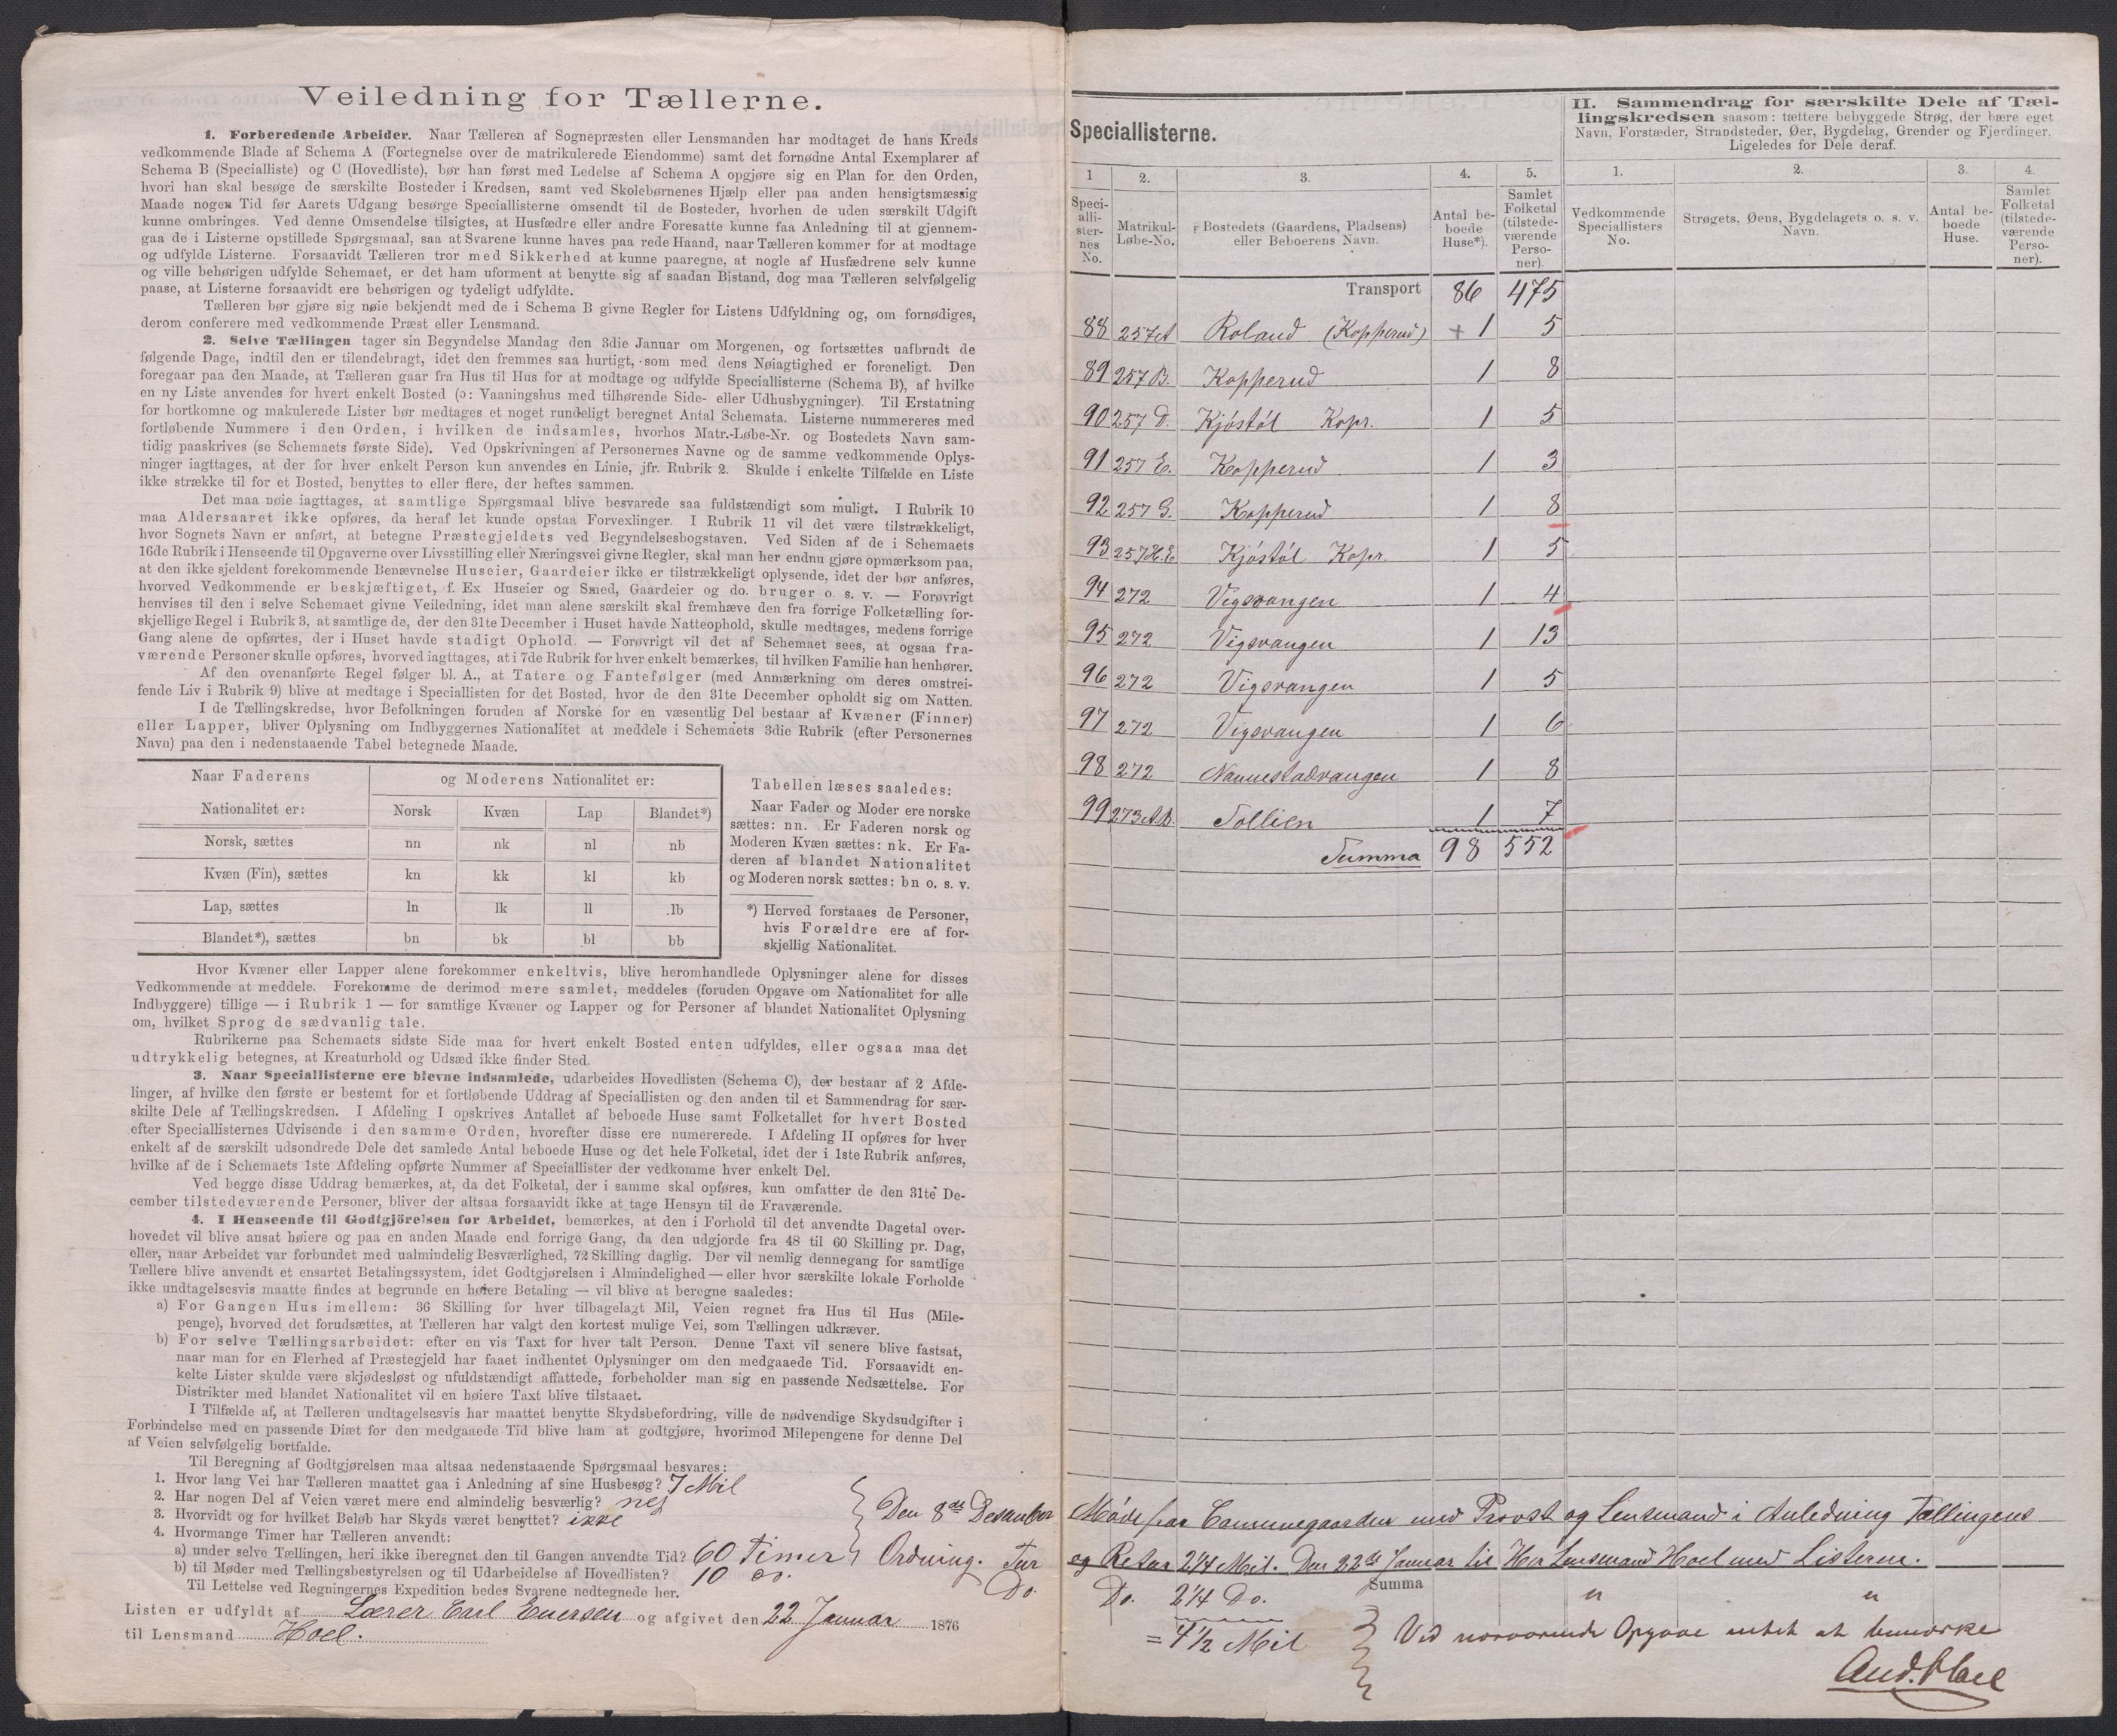 Veiledning for Tællerne.
1. Forberedende Arbeider. Naar Tælleren af Sognepræsten eller Lensmanden har modtaget de hans Kreds
vedkommende Blade af Schema A (Fortegnelse over de matrikulerede Eiendomme) samt det fornødne Antal Exemplarer af
Schema B (Specialliste) og C (Hovedliste), bør han først med Ledelse af Schema A opgjøre sig en Plan for den Orden,
hvori han skal besøge de særskilte Bosteder i Kredsen, samt ved Skolebørnenes Hjælp eller paa anden hensigtsmæssig
Maade nogen Tid før Aarets Udgang besørge Speciallisterne omsendt til de Bosteder, hvorhen de uden særskilt Udgift
kunne ombringes. Ved denne Omsendelse tilsigtes, at Husfædre eller andre Foresatte kunne faa Anledning til at gjennem-
gaa de i Listerne opstillede Spørgsmaal, saa at Svarene kunne haves paa rede Haand, naar Tælleren kommer for at modtage
og udfylde Listerne. Forsaavidt Tælleren tror med Sikkerhed at kunne paaregne, at nogle af Husfædrene selv kunne
og ville behørigen udfylde Schemaet, er det ham uforment at benytte sig af saadan Bistand, dog maa Tælleren selvfølgelig
paase, at Listerne forsaavidt ere behørigen og tydeligt udfyldte.
Tælleren bør gjøre sig nøie bekjendt med de i Schema B givne Regler for Listens Udfyldning og, om fornødiges,
derom conferere med vedkommende Præst eller Lensmand.
2. Selve Tællingen tager sin Begyndelse Mandag den 3die Januar om Morgenen, og fortsættes uafbrudt de
følgende Dage, indtil den er tilendebragt, idet den fremmes saa hurtigt, som med dens Nøiagtighed er foreneligt. Den
foregaar paa den Maade, at Tælleren gaar fra Hus til Hus for at modtage og udfylde Speciallisterne (Schema B), af hvilke
en ny Liste anvendes for hvert enkelt Bosted (ɔ: Vaaningshus med tilhørende Side- eller Udhusbygninger). Til Erstatning
for bortkomne og makulerede Lister bør medtages et noget rundeligt beregnet Antal Schemata. Listerne nummereres med
fortløbende Nummere i den Orden, i hvilken de indsamles, hvorhos Matr.-Løbe-Nr. og Bostedets Navn sam-
tidig paaskrives (se Schemaets første Side). Ved Opskrivningen af Personernes Navne og de samme vedkommende Oplys-
ninger iagttages, at der for hver enkelt Person kun anvendes én Linie, jfr. Rubrik 2. Skulde i enkelte Tilfælde en Liste
ikke strække til for et Bosted, benyttes to eller flere, der heftes sammen.
Det maa nøie iagttages, at samtlige Spørgsmaal blive besvarede saa fuldstændigt som muligt. I Rubrik 10
maa Aldersaaret ikke opføres, da heraf let kunde opstaa Forvexlinger. I Rubrik 11 vil det være tilstrækkeligt,
hvor Sognets Navn er anført, at betegne Præstegjeldets ved Begyndelsesbogstaven. Ved Siden af de i Schemaets
16de Rubrik i Henseende til Opgaverne over Livsstilling eller Næringsvei givne Regler, skal man her endnu gjøre opmærksom paa,
at den ikke sjeldent forekommende Benævnelse Huseier, Gaardeier ikke er tilstrækkeligt oplysende, idet der bør anføres,
hvorved Vedkommende er beskjæftiget, f. Ex Huseier og Smed, Gaardeier og do. bruger o. s. v. — Forøvrigt
henvises til den i selve Schemaet givne Veiledning, idet man alene særskilt skal fremhæve den fra forrige Folketælling for-
skjellige Regel i Rubrik 3, at samtlige de, der den 31te December i Huset havde Natteophold, skulle medtages, medens forrige
Gang alene de opførtes, der i Huset havde stadigt Ophold. — Forøvrigt vil det af Schemaet sees, at ogsaa fra-
værende Personer skulle opføres, hvorved iagttages, at i 7de Rubrik for hver enkelt bemærkes, til hvilken Familie han henhører.
Af den ovenanførte Regel følger bl. A., at Tatere og Fantefølger (med Anmærkning om deres omstrei-
fende Liv i Rubrik 9) blive at medtage i Speciallisten for det Bosted, hvor de den 31te December opholdt sig om Natten.
I de Tællingskredse, hvor Befolkningen foruden af Norske for en væsentlig Del bestaar af Kvæner (Finner)
eller Lapper, bliver Oplysning om Indbyggernes Nationalitet at meddele i Schemaets 3die Rubrik (efter Personernes
Navn) paa den i nedenstaaende Tabel betegnede Maade.
Naar Faderens og Moderens Nationalitet er:
Nationalitet er: Norsk Kvæn Lap Blandet*)
Norsk, sættes nn nk nl nb
Kvæn (Fin), sættes kn kk kl kb
Lap, sættes ln lk ll lb
Blandet*), sættes bn bk bl bb
Tabellen læses saaledes:
Naar Fader og Moder ere norske
sættes: nn. Er Faderen norsk og
Moderen Kvæn sættes: nk. Er Fa-
deren af blandet Nationalitet
og Moderen norsk sættes: bn o. s. v.
*) Herved forstaaes de Personer,
hvis Forældre ere af for-
skjellig Nationalitet.
Hvor Kvæner eller Lapper alene forekommer enkeltvis, blive heromhandlede Oplysninger alene for disses
Vedkommende at meddele. Forekomme de derimod mere samlet, meddeles (foruden Opgave om Nationalitet for alle
Indbyggere) tillige — i Rubrik 1 — for samtlige Kvæner og Lapper og for Personer af blandet Nationalitet Oplysning
om, hvilket Sprog de sædvanlig tale.
Rubrikerne paa Schemaets sidste Side maa for hvert enkelt Bosted enten udfyldes, eller ogsaa maa det
udtrykkelig betegnes, at Kreaturhold og Udsæd ikke finder Sted.
3. Naar Speciallisterne ere blevne indsamlede, udarbeides Hovedlisten (Schema C), der bestaar af 2 Afde-
linger, af hvilke den første er bestemt for et fortløbende Uddrag af Speciallisten og den anden til et Sammendrag for sær-
skilte Dele af Tællingskredsen. I Afdeling I opskrives Antallet af beboede Huse samt Folketallet for hvert Bosted
efter Speciallisternes Udvisende i den samme Orden, hvorefter disse ere numererede. I Afdeling II opføres for hver
enkelt af de særskilt udsondrede Dele det samlede Antal beboede Huse og det hele Folketal, idet der i 1ste Rubrik anføres,
hvilke af de i Schemaets 1ste Afdeling opførte Nummer af Speciallister der vedkomme hver enkelt Del.
Ved begge disse Uddrag bemærkes, at, da det Folketal, der i samme skal opføres, kun omfatter de den 31te De-
cember tilstedeværende Personer, bliver der altsaa forsaavidt ikke at tage Hensyn til de Fraværende.
4. I Henseende til Godtgjörelsen for Arbeidet, bemærkes, at den i Forhold til det anvendte Dagetal over-
hovedet vil blive ansat høiere og paa en anden Maade end forrige Gang, da den udgjorde fra 48 til 60 Skilling pr. Dag,
eller, naar Arbeidet var forbundet med ualmindelig Besværlighed, 72 Skilling daglig. Der vil nemlig dennegang for samtlige
Tællere blive anvendt et ensartet Betalingssystem, idet Godtgjørelsen i Almindelighed — eller hvor særskilte lokale Forholde
ikke undtagelsesvis maatte findes at begrunde en høiere Betaling — vil blive at beregne saaledes:
a) For Gangen Hus imellem: 36 Skilling for hver tilbagelagt Mil, Veien regnet fra Hus til Hus (Mile-
penge), hvorved det forudsættes, at Tælleren har valgt den kortest mulige Vei, som Tællingen udkræver.
b) For selve Tællingsarbeidet: efter en vis Taxt for hver talt Person. Denne Taxt vil senere blive fastsat,
naar man for en Flerhed af Præstegjeld har faaet indhentet Oplysninger om den medgaaede Tid. Forsaavidt en-
kelte Lister skulde være skjødesløst og ufuldstændigt affattede, forbeholder man sig en passende Nedsættelse. For
Distrikter med blandet Nationalitet vil en høiere Taxt blive tilstaaet.
I Tilfælde af, at Tælleren undtagelsesvis har maattet benytte Skydsbefordring, ville de nødvendige Skydsudgifter i
Forbindelse med en passende Diæt for den medgaaede Tid blive ham at godtgjøre, hvorimod Milepengene for denne Del
af Veien selvfølgelig bortfalde.
Til Beregning af Godtgjørelsen maa altsaa nedenstaaende Spørgsmaal besvares:
1. Hvor lang Vei har Tælleren maattet gaa i Anledning af sine Husbesøg? 7 Mil
2. Har nogen Del af Veien været mere end almindelig besværlig? nej
3. Hvorvidt og for hvilket Beløb har Skyds været benyttet? ikke
4. Hvormange Timer har Tælleren anvendt:
a) under selve Tællingen, heri ikke iberegnet den til Gangen anvendte Tid? 60 Timer
b) til Møder med Tællingsbestyrelsen og til Udarbeidelse af Hovedlisten? 10 do.
Til Lettelse ved Regningernes Expedition bedes Svarene nedtegnede her.
Listen er udfyldt af Lærer Carl Eversen og afgivet den 22 Januar 1876
til Lensmand Hoel.
Speciallisterne.
1 2. 3. 4. 5.
Speci-alli-ster-nes No. Matrikul-Løbe-No. Bostedets (Gaardens, Pladsens) eller Beboerens Navn. Antal be-boede Huse*). Samlet Folketal (tilstede-værende Perso-ner).
Transport 86 475
88 257A Roland (Kopperud) + 1 5
89 257 B. Kopperud 1 8
90 257 D. Kjóstól Kopr. 1 5
91 257 E. Kopperud 1 3
92 257 G. Kopperud 1 8
93 257 H.E Kjóstól Kopr. 1 5
94 272 Vigsvangen 1 4
95 272 Vigsvangen 1 13
96 272 Vigsvangen 1 5
97 272 Vigsvangen 1 6
98 272 Nannestadvangen 1 8
99 273 A.B. Sollien 1 7
Summa 98 552
II. Sammendrag for særskilte Dele af Tæl-
lingskredsen saasom: tættere bebyggede Strøg, der bære eget
Navn, Forstæder, Strandsteder, Øer, Bygdelag, Grender og Fjerdinger.
Ligeledes for Dele deraf.
1. 2. 3. 4.
Vedkommende Speciallisters No. Strøgets, Øens, Bygdelagets o. s. v. Navn. Antal be-boede Huse. Samlet Folketal (tilstede-værende Perso-ner).
Den 8de Desember Møde paa Communegaarden med Provst og Lensmand i Anledning Tællingens
Ordning. Tur og Retur 2 1/4 Mil. Den 22de Januar til Her Lensmand Hoel med Listerne.
Do. Do. 2 1/4 Do. " "
Summa
= 4 1/2 Mil
Ved nærværende Opgave intet at bemærke
And. Hoel